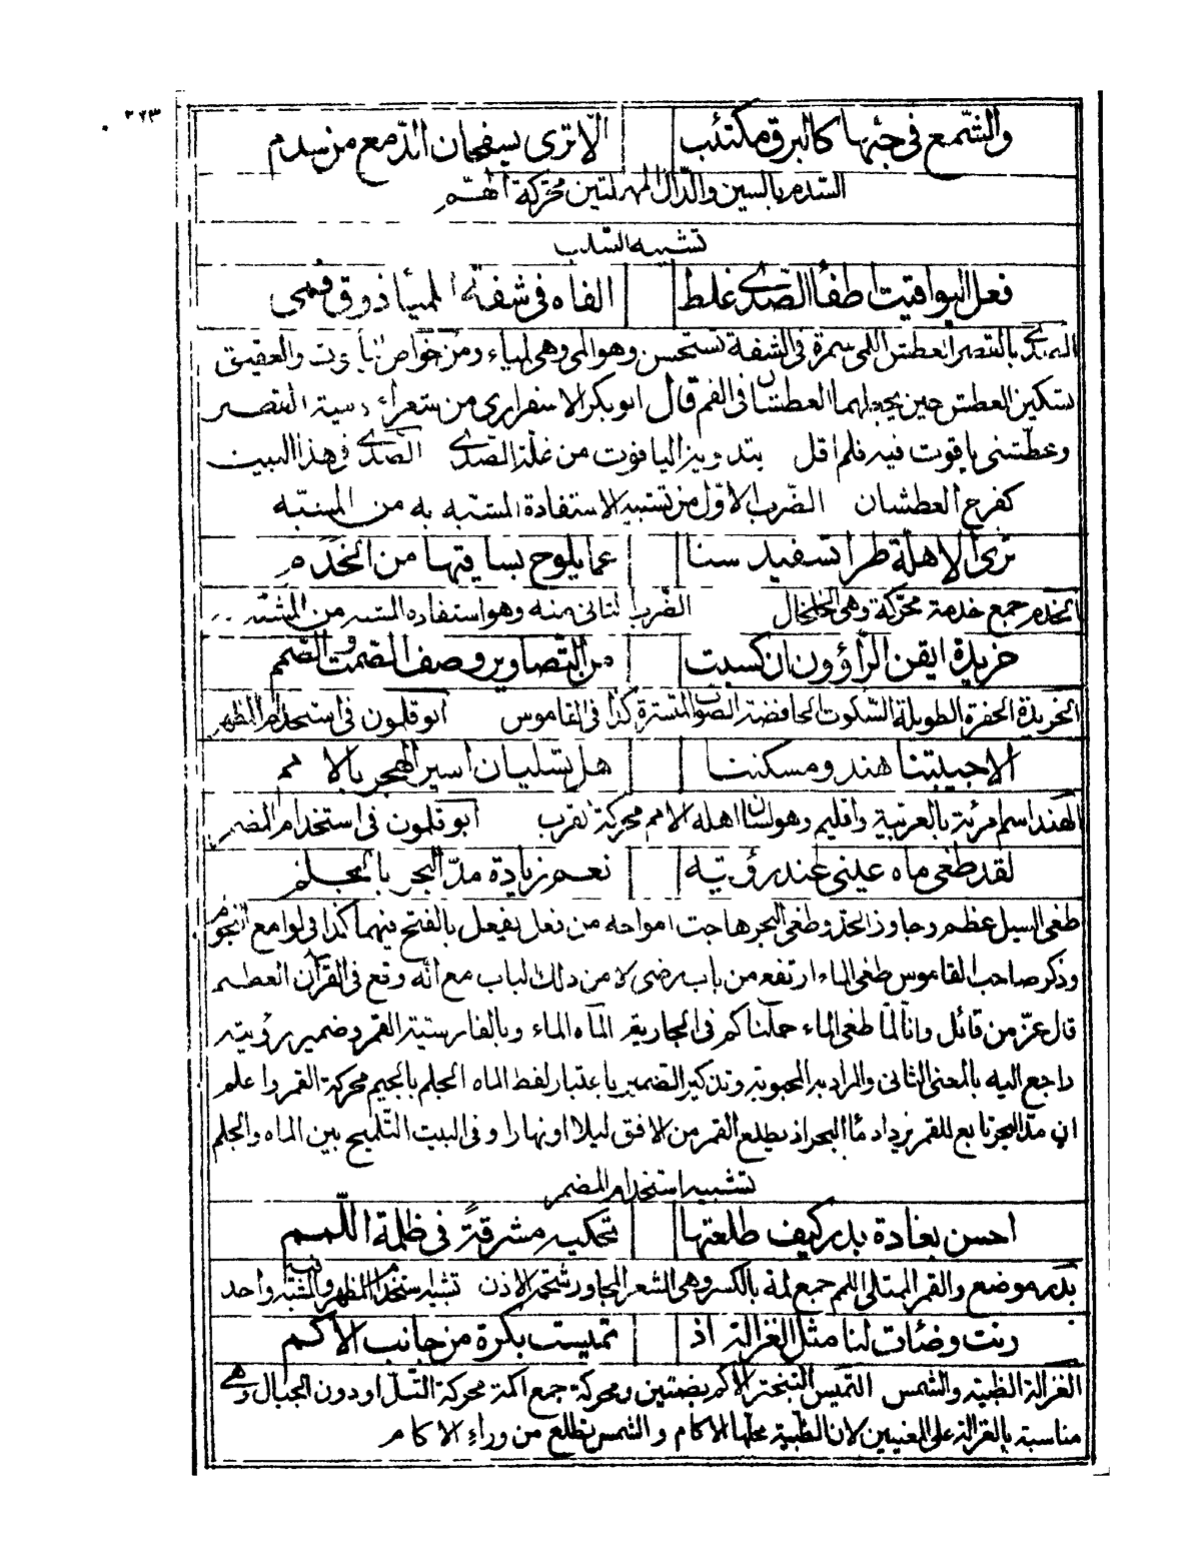 ٣٢٣
والشمع في جنبها كالبرق مكتئب الا ترى يسفحان الدمع من سدم
السدم بالسين والدال المهملتين محركة الهم
تشبيه السلب
فعل اليواقيت اطفأ الصدى غلط الفاه في شفة لميا ذوق فمي
الصدى بالقصر العطش اللمى سمرة في الشفة تستحسن وهو المى وهي لمياء ومن خواص الياقوت والعقيق
تسكين العطش حين يجعلهما العطشان في الفم قال ابو بكر الاسفرارى من شعراء دمية القصر
وعطشنى ياقوت فيه فلم اقل بتدويز الياقوت من غلة الصدى الصدى في هذا البيت
كفرح العطشان الضرب الاول من تشبيه الاستفادة المشبه به من المشبه
ترى الاهلة طرا تستفيد سنا عما يلوح بساقيها من الخدم
الخدم جمع خدمة محركة وهي الخلخال الضرب الثاني منه وهو استفادة المشبه من المشبه
خريدة ايقن الراؤون ان كسبت من التصاوير وصف الصمت والصمم
الخريدة الخفرة الطويلة السكوت الخافضة الصوت المتسترة كذا في القاموس ابو قلمون في استخدام المظهر
الا جيبتنا هند ومسكننا هل يسليان اسير الهجر بالامم
الهند اسم امرئة بالعربية واقليم وهو لسان اهله الامم محركة القرب ابو قلمون في استخدام المضمر
لقد طغى ماه عيني عند رؤيتيه نعم زيادة مد البحر بالجلم
طغى السيل عظم وجاوز الحد وطغى البحر هاجت امواجه من فعل يفعل بالفتح فيهما كذا في لوامع النجوم
وذكر صاحب القاموس طغى الماء ارتفع من باب رضى لا من ذلك الباب مع انه وقع في القرآن العظيم
قال عز من قائل وانا لما طغى الماء حملناكم في الجارية الماه الماء وبالفارسية القمر وضمير رؤيتيه
راجع اليه بالمعنى الثاني والمراد به المحبوبة وتذكير الضمير باعتبار لفظ الماه الجلم بالجيم محركة القمر واعلم
ان مد البحر تابع للقمر يزداد ماء البحر اذ يطلع القمر من الافق ليلا او نهارا وفي البيت التلميح بين الماه والجلم
تشبيه استخدام المضمر
احسن بغادة بدر كيف طلعتها تحكيه مشرقة في ظلمة اللمم
بدر موضع والقمر الممتلى اللمم جمع لمة بالكسر وهي الشعر المجاور شحمة الاذن تشبيه استخدام المظهر والمشبه واحد
رنت وضائت لنا مثل الغزالة اذ تميست بكرة من جانب الاكم
الغزالة الظبية والشمس التميس التبختر الاكم بضمتين ومحركة جمع اكمة محركة التل او دون الجبال وهي
مناسبة بالغزالة على المعنيين لان الظبية محلها الاكام والشمس تطلع من وراء الاكام